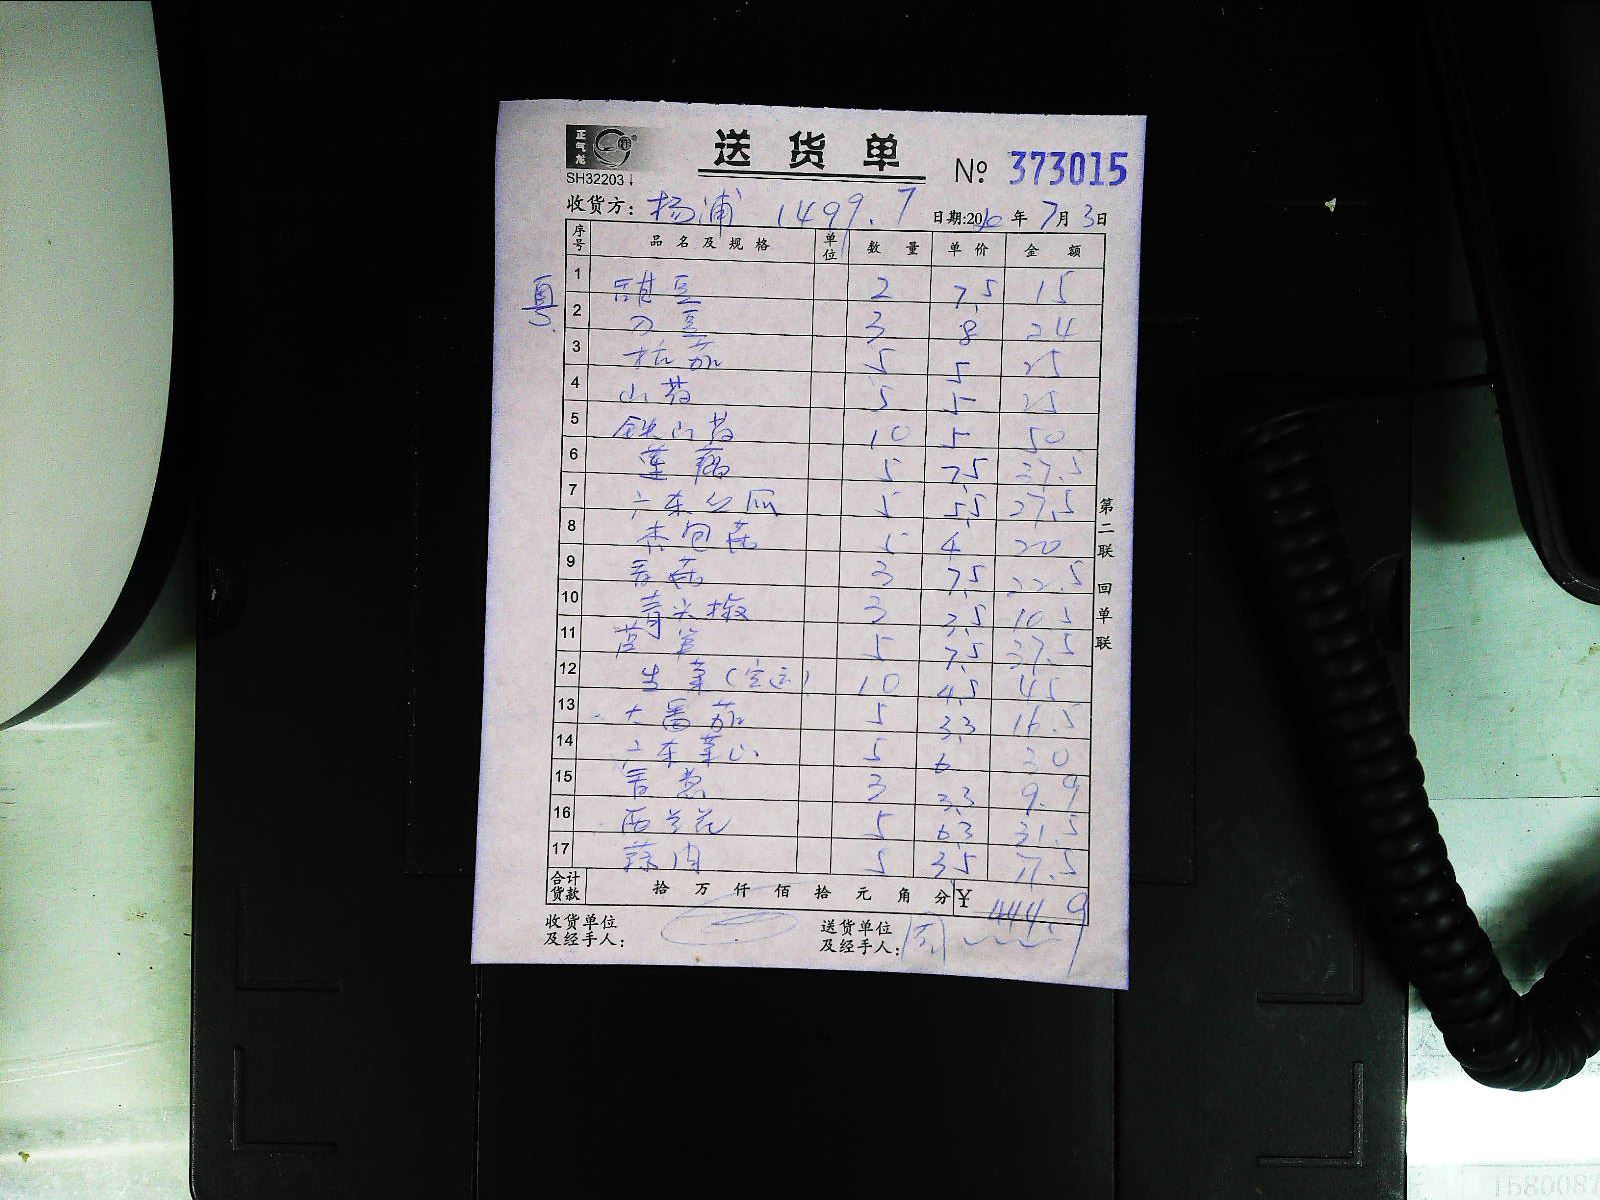 正气龙
送货单
SH32203
№ 373015
收货方: 杨浦 1499.7 日期:20 年 7月 3日
序号 品名及规格 单位 数量 单价 金额
粤
1 甜豆 2 7.5 15
2 刀豆 3 8 24
3 杭茄 5 5 25
4 山药 5 5 25
5 铁山药 10 5 50
6 莲藕 5 7.5 37.5
7 广东丝瓜 5 5.5 27.5
8 杏包菇 5 4 20
9 香菇 3 7.5 22.5
10 青尖椒 3 3.5 10.5
11 莴笋 5 7.5 37.5
12 生菜(空运) 10 4.5 45
13 大番茄 5 3.3 16.5
14 广东菜心 5 6 30
15 香葱 3 3.3 9.9
16 西兰花 5 6.3 31.5
17 蒜肉 5 3.5 17.5
合计货款 拾 万 仟 佰 拾 元 角 分 ¥ 444.9
收货单位及经手人:
送货单位及经手人: 周
第二联 回单联
1580087